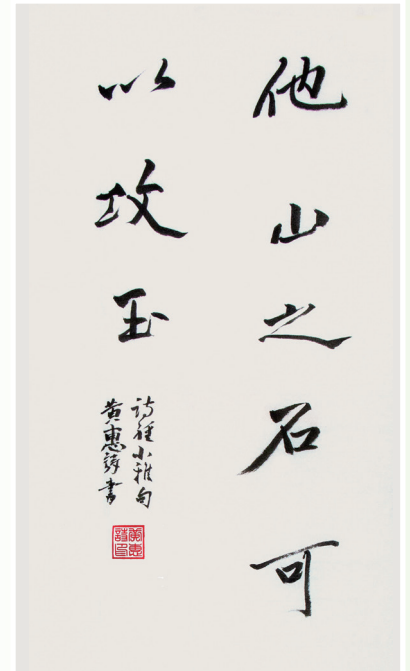 他山之石可
以攻玉
诗經小雅句
黄惠書